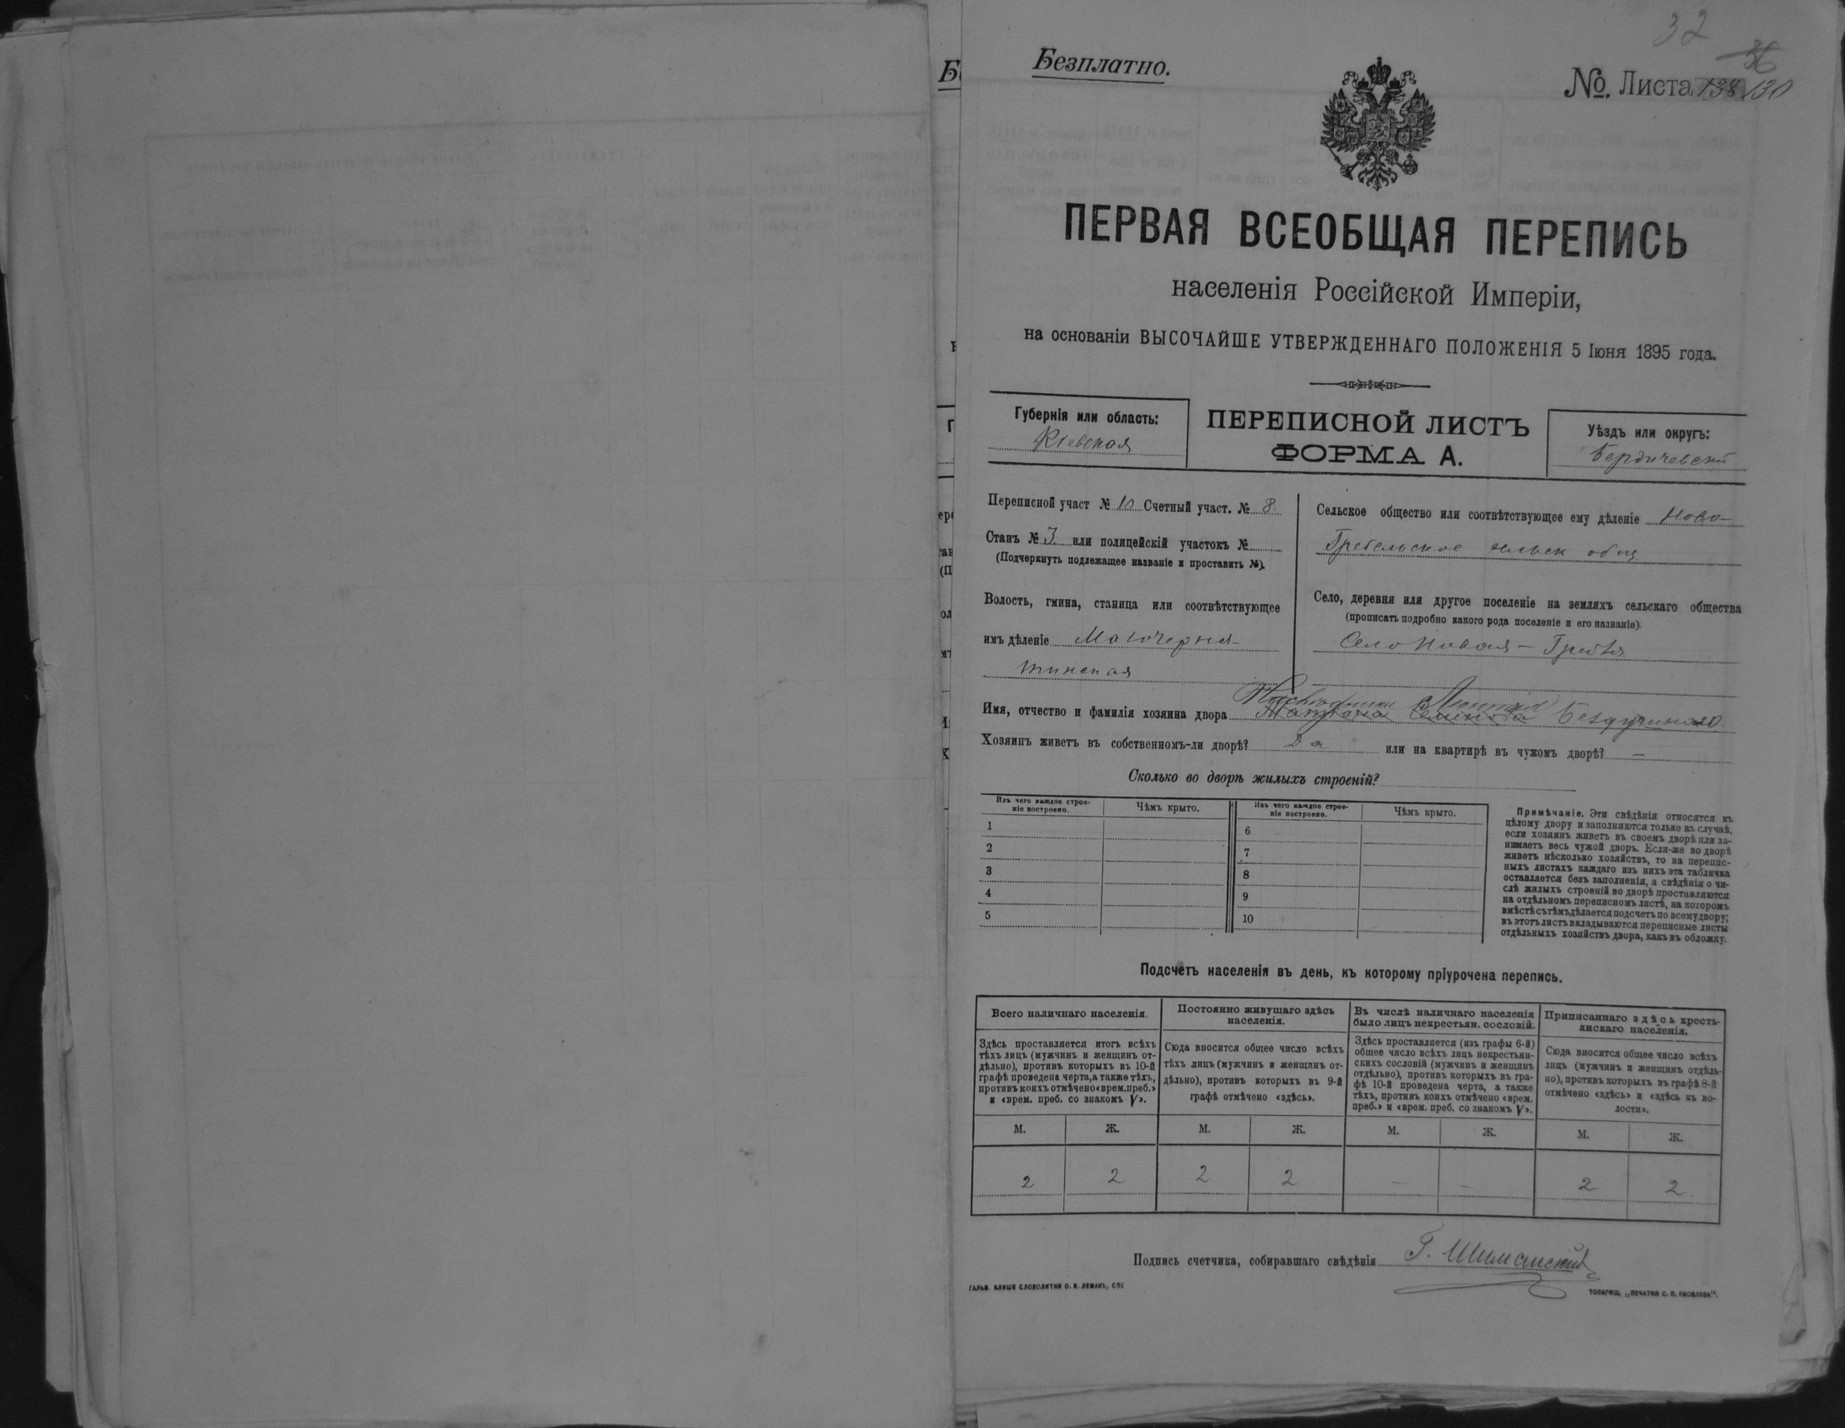 32
Безплатно.
36
№. Листа 138 130
ПЕРВАЯ ВСЕОБЩАЯ ПЕРЕПИСЬ
населенія Россійской Имперіи,
на основаніи ВЫСОЧАЙШЕ УТВЕРЖДЕННАГО ПОЛОЖЕНІЯ 5 Іюня 1895 года.
Губернія или область:
Кіевская
ПЕРЕПИСНОЙ ЛИСТЪ
ФОРМА А.
Уѣздъ или округъ:
Бердичевскій
Переписной участ № 10 Счетный участ. № 8
Станъ № 3 или полицейскій участокъ №
(Подчеркнуть подлежащее названіе и проставить №).
Волость, гмина, станица или соотвѣтствующее
имъ дѣленіе
тинская
Сельское общество или соотвѣтствующее ему дѣленіе Ново-
Гребельское сельск общ
Село, деревня или другое поселеніе на земляхъ сельскаго общества
(прописать подробно какого рода поселеніе и его названіе).
Село Новая-Гребля
Имя, отчество и фамилія хозяина двора
Хозяинъ живетъ въ собственномъ-ли дворѣ? Да или на квартирѣ въ чужомъ дворѣ? —
Сколько во дворѣ жилыхъ строеній?
Изъ чего каждое строе-
ніе построено.
Чѣмъ крыто.
Изъ чего каждое строе-
ніе построено.
Чѣмъ крыто.
1
2
3
4
5
6
7
8
9
10
Примѣчаніе. Эти свѣдѣнія относятся къ
цѣлому двору и заполняются только въ случаѣ,
если хозяинъ живетъ въ своемъ дворѣ или за-
нимаетъ весь чужой дворъ. Если-же во дворѣ
живетъ нѣсколько хозяйствъ, то на перепис-
ныхъ листахъ каждаго изъ нихъ эта табличка
оставляется безъ заполненія, а свѣдѣнія о чи-
слѣ жилыхъ строеній во дворѣ проставляются
на отдѣльномъ переписномъ листѣ, на которомъ
вмѣстѣ съ тѣмъ дѣлается подсчетъ по всему двору;
въ этотъ листъ вкладываются переписные листы
отдѣльныхъ хозяйствъ двора, какъ въ обложку.
Подсчетъ населенія въ день, къ которому пріурочена перепись.
Всего наличнаго населенія.
Здѣсь проставляется итогъ всѣхъ
тѣхъ лицъ (мужчинъ и женщинъ от-
дѣльно), противъ которыхъ въ 10-й
графѣ проведена черта, а также тѣхъ,
противъ коихъ отмѣчено «врем. преб.»
и «врем. преб. со знакомъ V».
Постоянно живущаго здѣсь
населенія.
Сюда вносится общее число всѣхъ
тѣхъ лицъ (мужчинъ и женщинъ от-
дѣльно), противъ которыхъ въ 9-й
графѣ отмѣчено «здѣсь».
Въ числѣ наличнаго населенія
было лицъ некрестьян. сословій.
Здѣсь проставляется (изъ графы 6-й)
общее число всѣхъ лицъ некрестьян-
скихъ сословій (мужчинъ и женщинъ
отдѣльно), противъ которыхъ въ гра-
фѣ 10-й проведена черта, а также
тѣхъ, противъ коихъ отмѣчено «врем.
преб.» и «врем. преб. со знакомъ V».
Приписаннаго здѣсь кресть-
янскаго населенія.
Сюда вносится общее число всѣхъ
лицъ (мужчинъ и женщинъ отдѣль-
но), противъ которыхъ въ графѣ 8-й
отмѣчено «здѣсь» и «здѣсь къ во-
лости».
М. Ж. М. Ж. М. Ж. М. Ж.
2 2 2 2 — — 2 2
Подпись счетчика, собиравшаго свѣдѣнія Г. Шиманскій
ГАЛЬВ. КЛИШЕ СЛОВОЛИТНИ О. И. ЛЕМАНЪ, СПБ
ТОВАРИЩ. „ПЕЧАТНЯ С. П. ЯКОВЛЕВА“.